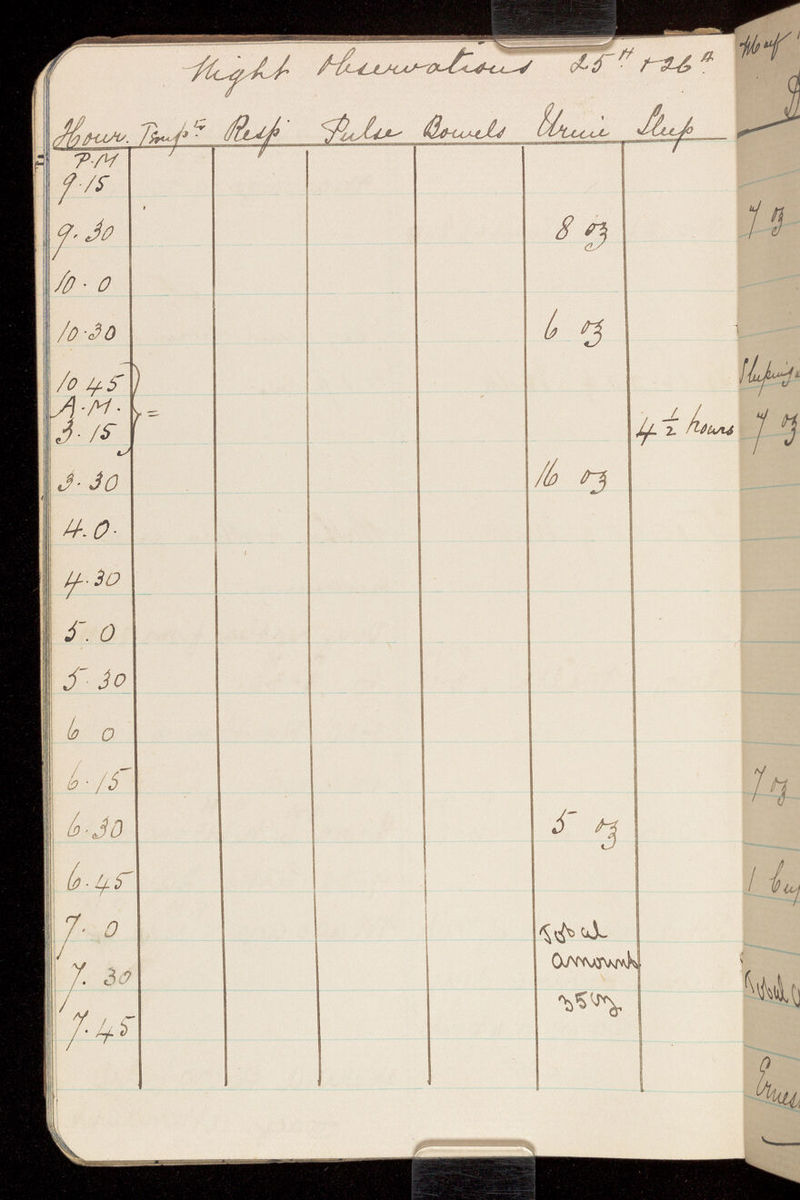 Night Observations 25th + 26th
Hour. Tempte Resp Pulse Bowels Urine Sleep
P.M
9.15
9.30 8 oz
10.0
10.30 6 oz
10 45
A.M. =
3.15 4 1/2 hours
3.30 16 oz
4.0.
4.30
5.0
5.30
6 0
6.15
6.30 5 oz
6.45
7.0 Total
amount
7.30
35 oz
7.45
7 oz
Sleeping
7 oz
7 oz
1
Total